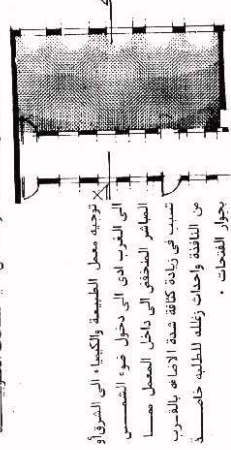 توجيه معمل الطبيعة والكيمياء الى الشرق أو
الى الغرب ادى الى دخول ضوء الشمس
المباشر المنخفض الى داخل المعمل مما
تسبب فى زيادة كثافة شدة الاضاءه بالقرب
من النافذة واحداث زغلله للطلبه خاصة
بجوار الفتحات .